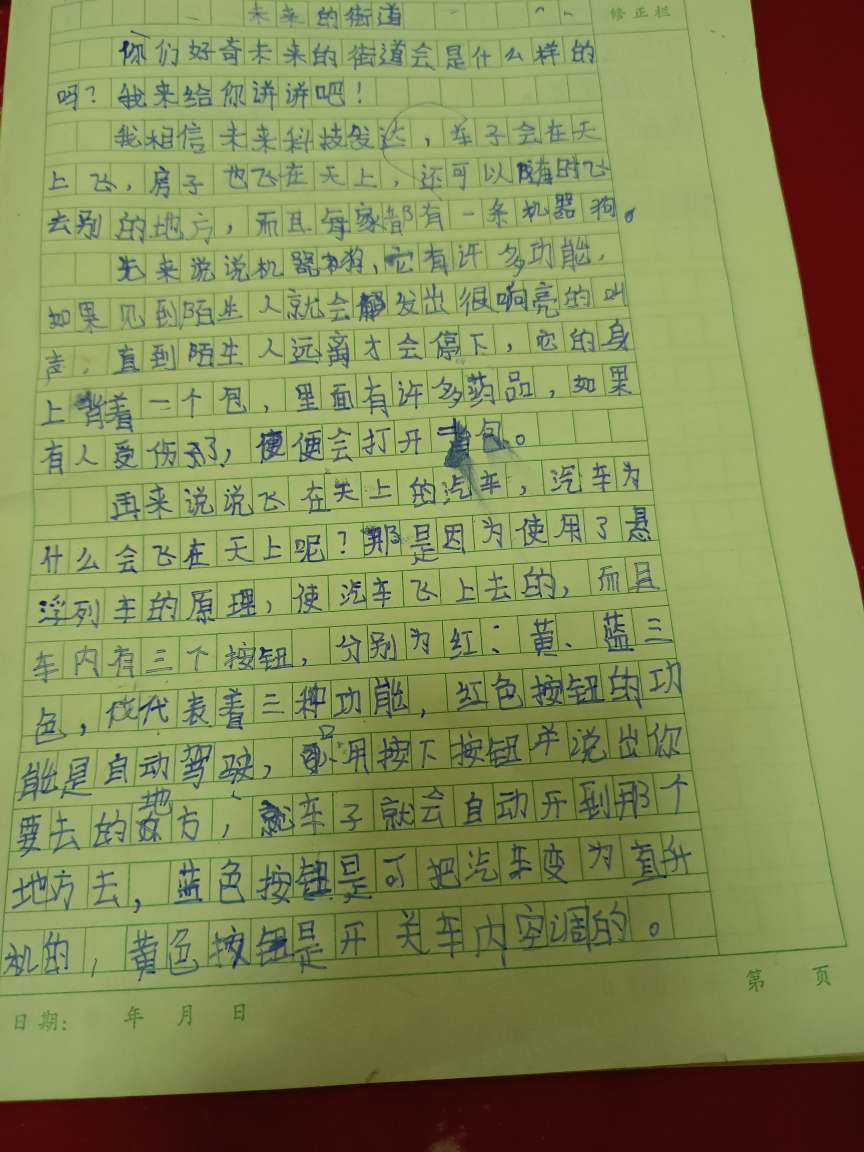 未来的街道
修正栏
你们好奇未来的街道会是什么样的
吗?我来给你讲讲吧!
我相信未来科技发达,车子会在天
上飞,房子也飞在天上,还可以随时飞
去别的地方,而且每家都有一条机器狗。
先来说说机器狗,它有许多功能,
如果见到陌生人就会发出很响亮的叫
声,直到陌生人远离才会停下,它的身
上背着一个包,里面有许多药品,如果
有人受伤了,便会打开背包。
再来说说飞在天上的汽车,汽车为
什么会飞在天上呢?那是因为使用了悬
浮列车的原理,使汽车飞上去的,而且
车内有三个按钮,分别为红、黄、蓝三
色,代表着三种功能,红色按钮的功
能是自动驾驶,只用按下按钮并说出你
要去的地方,车子就会自动开到那个
地方去,蓝色按钮是可把汽车变为直升
机的,黄色按钮是开关车内空调的。
日期: 年 月 日
第 页